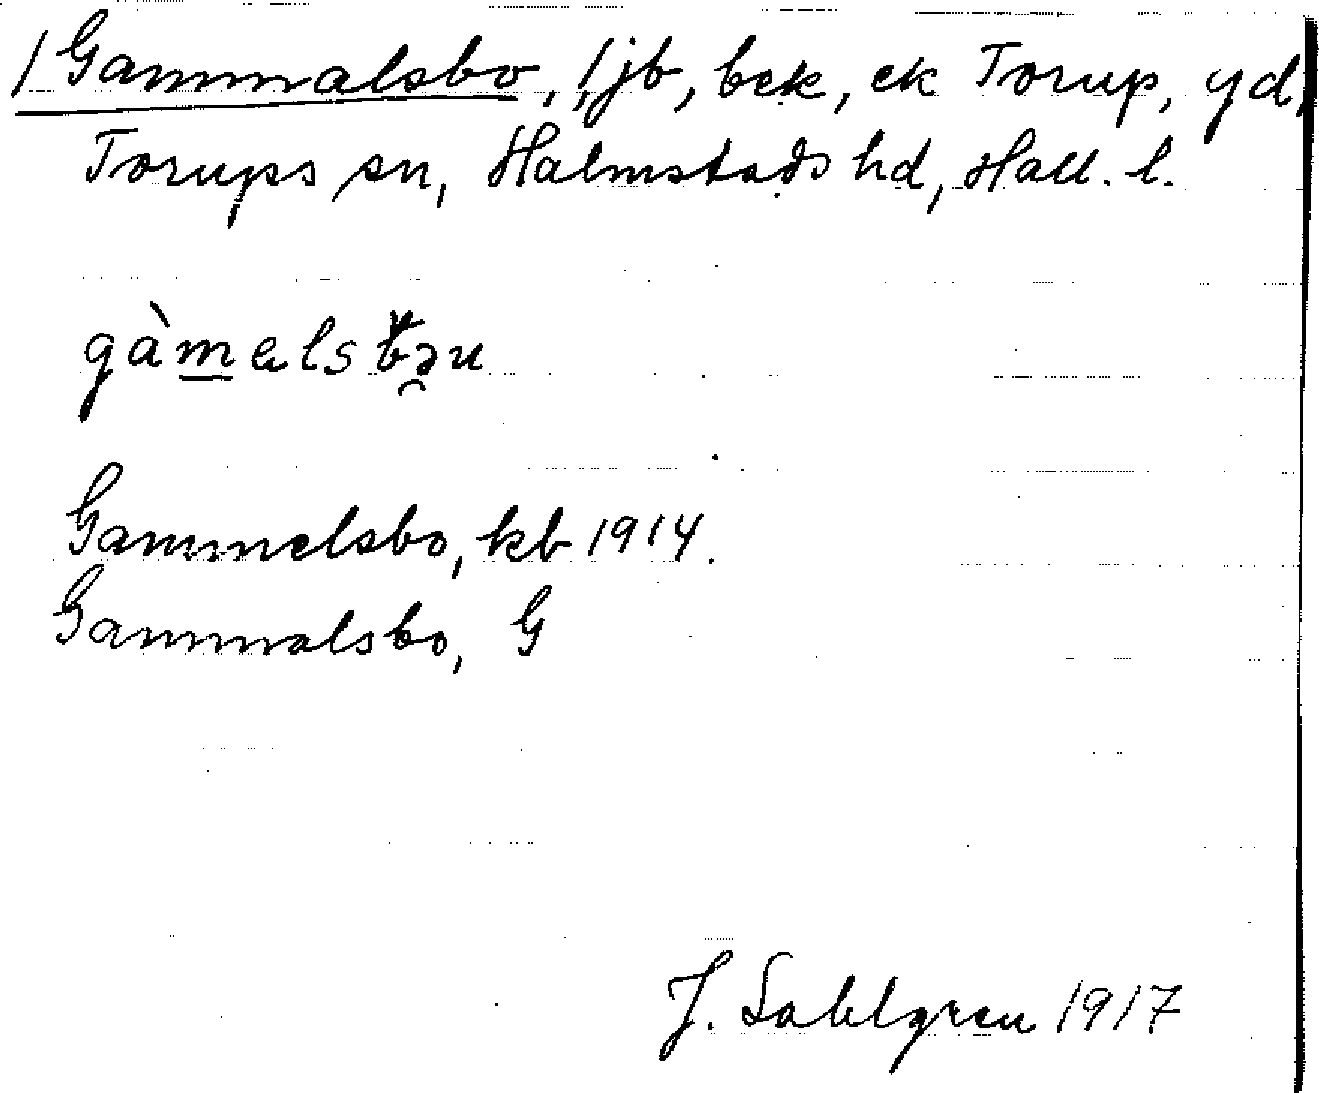 / Gammalsbo, 1/jb, bek, ek Torup, yd,
Torups sn, Halmstads hd, Hall. l.
gàmelsbəu
Gammelsbo, kb 1914.
Gammalsbo, G
J. Sahlgren 1917